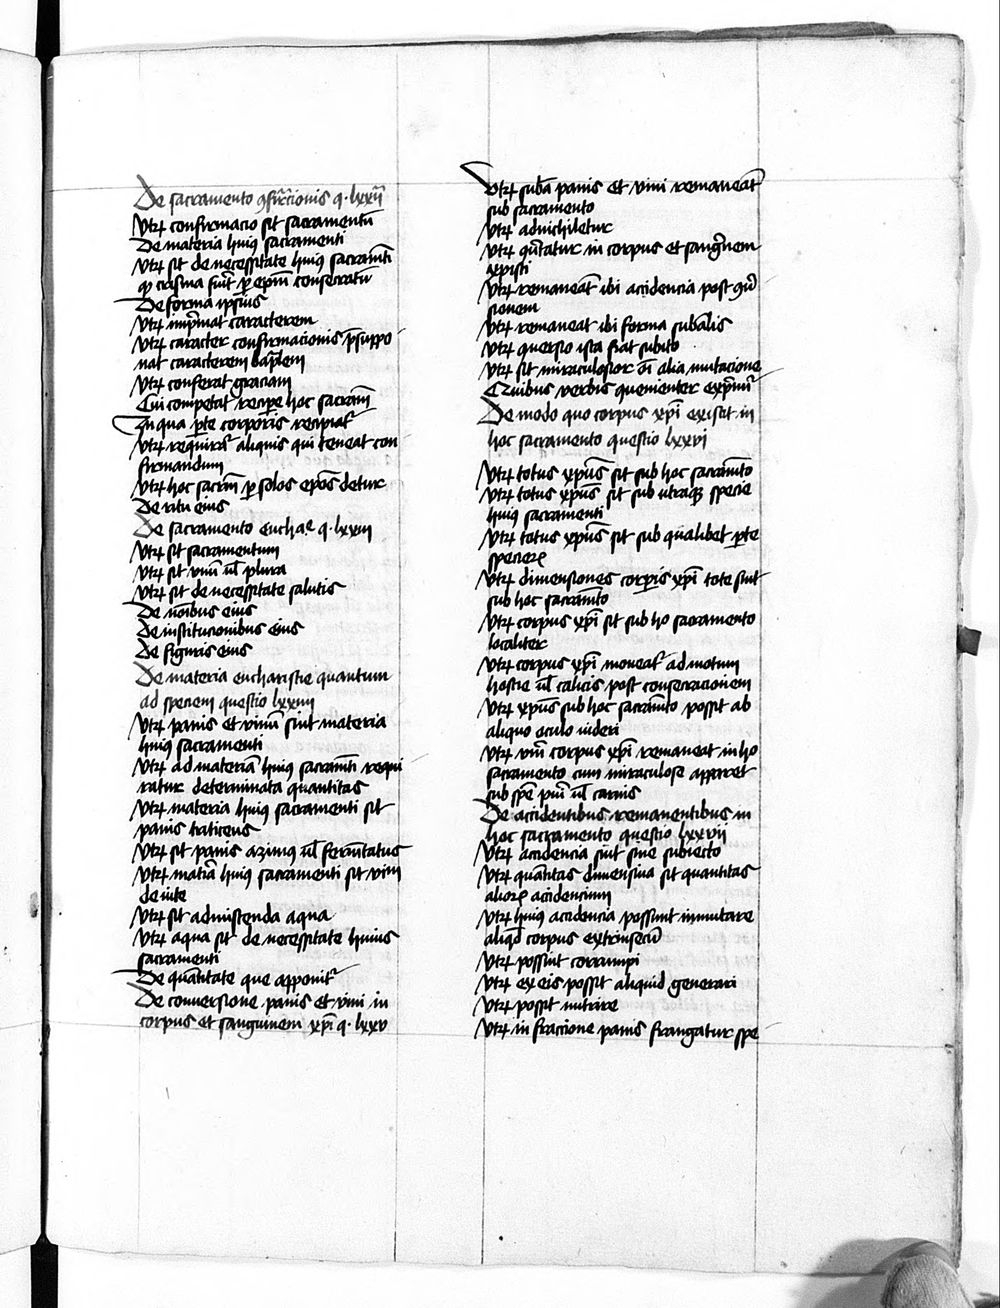 De sacramento ꝯfirͫcionis q. lxxii
Vtrꝫ confirmacio sit sacramentū
De materia huiꝰ sacramenti
Vtrꝫ sit de necessitate huiꝰ sacramti
ꝙ crisma fuīt ꝑ epm̄ consecratū
De forma ipsius
Vtrꝫ imp̄mat caracterem
Vtrꝫ caracter confirmacionis p̄suppo
nat caracterem bap̄lem
Vtrꝫ conferat graciam
Cui competat recipe hoc sacram̄
In qua ꝑte corporis recipiatʳ
Vtrꝫ requiratʳ aliquis qui teneat con
firmandum
Vtrꝫ hoc sacrm̄ ꝑ solos epōs detur
De ritu eius
De sacramento eucha͛e q. lxxiii
Vtrꝫ sit sacramentum
Vtrꝫ sit vnū ul̄ plura
Vtrꝫ sit de necessitate salutis
De nōibus eius
De institucionibus eius
De figuris eius
De materia eucharistie quantum
ad speciem questio lxxiiii
Vtrꝫ panis et vinū sint materia
huiꝰ sacramenti
Vtrꝫ ad materiā huiꝰ sacramti requi
ratur determinata quantitas
Vtrꝫ materia huiꝰ sacramenti sit
panis triticeus
Vtrꝫ sit panis azimꝰ ul̄ ferm̄tatus
Vtrꝫ mat̄ia huiꝰ sacramenti sit vinū
de uite
Vtrꝫ sit admiscenda aqua
Vtrꝫ aqua sit de necessitate huius
sacramenti
De quātitate que apponitʳ
De conuersione panis et vini in
corpus et sanguinem xp̄i q. lxxv
Vtrꝫ subā panis et vini remaneat
sub sacramento
Vtrꝫ adnichiletur
Vtrꝫ ꝯūtatur in corpus et sangīnem
xpisti
Vtrꝫ remaneāt ibi accidencia post ꝯūͬ
sionem
Vtrꝫ remaneat ibi forma subālis
Vtrꝫ ꝯuersio ista fiat subito
Vtrꝫ sit miraculosior oī alia mutacione
Quibus verbis ꝯuenienter exp̄mitʳ
De modo quo corpus xp̄i existit in
hoc sacramento questio lxxvi
Vtrꝫ totus xpūs sit sub hoc sacramto
Vtrꝫ totus xpūs sit sub utraqꝫ specie
huiꝰ sacramenti
Vtrꝫ totus xpūs sit sub qualibet ꝑte
specieꝝ
Vtrꝫ dimensiones corꝑis xp̄i tote sint
sub hoc sacramto
Vtrꝫ corpus xp̄i sit sub ho sacramento
localiter
Vtrꝫ corpus xp̄i moueatʳ ad motum
hostie ul̄ calicis post consecracionem
Vtrꝫ xpūs sub hoc sacramto possit ab
aliquo oculo uideri
Vtrꝫ vm̄ corpus xp̄i remaneat in ho
sacramento cum miraculose apparet
sub spē pui͛ ul̄ carnis
De accidentibus remanentibus in
hoc sacramento questio lxxvii
Vtrꝫ accidencia sint sine subiecto
Vtrꝫ quātitas dimensiua sit quantitas
alioꝝ accidencium
Vtrꝫ huiꝰ accidencia possunt inmutare
aliqd corpus extrinsecū
Vtrꝫ possint corrumpi
Vtrꝫ ex eis possit aliquid generari
Vtrꝫ possit nutrire
Vtrꝫ in fraccione panis frangatur spe